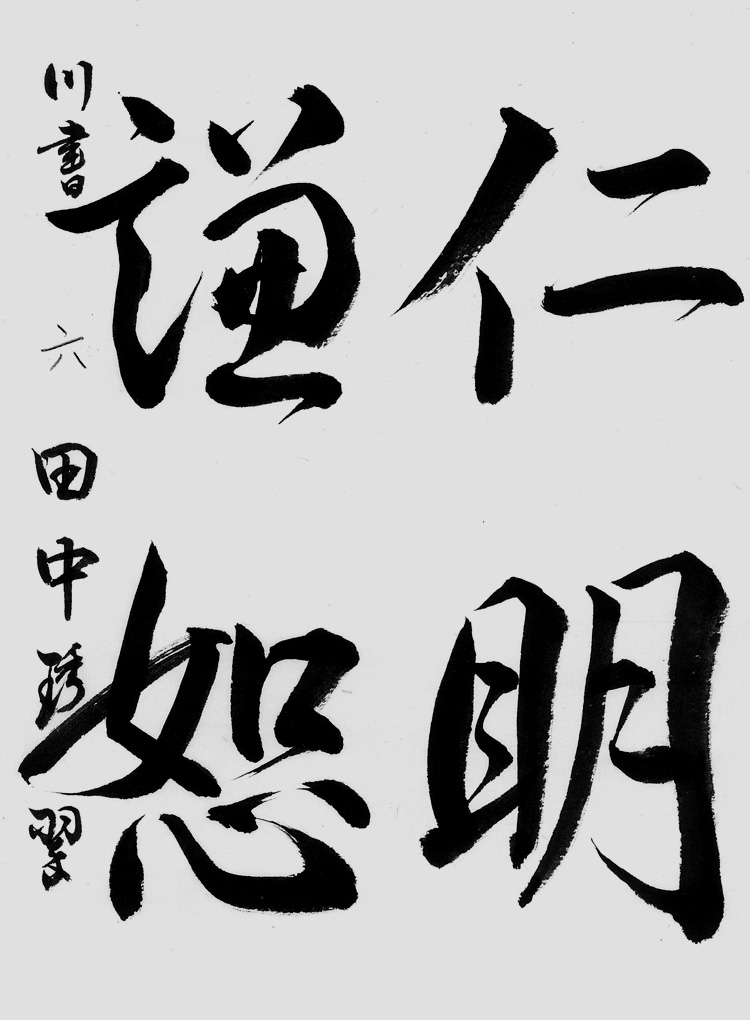 仁明
謙恕
川書 六 田中琇翠